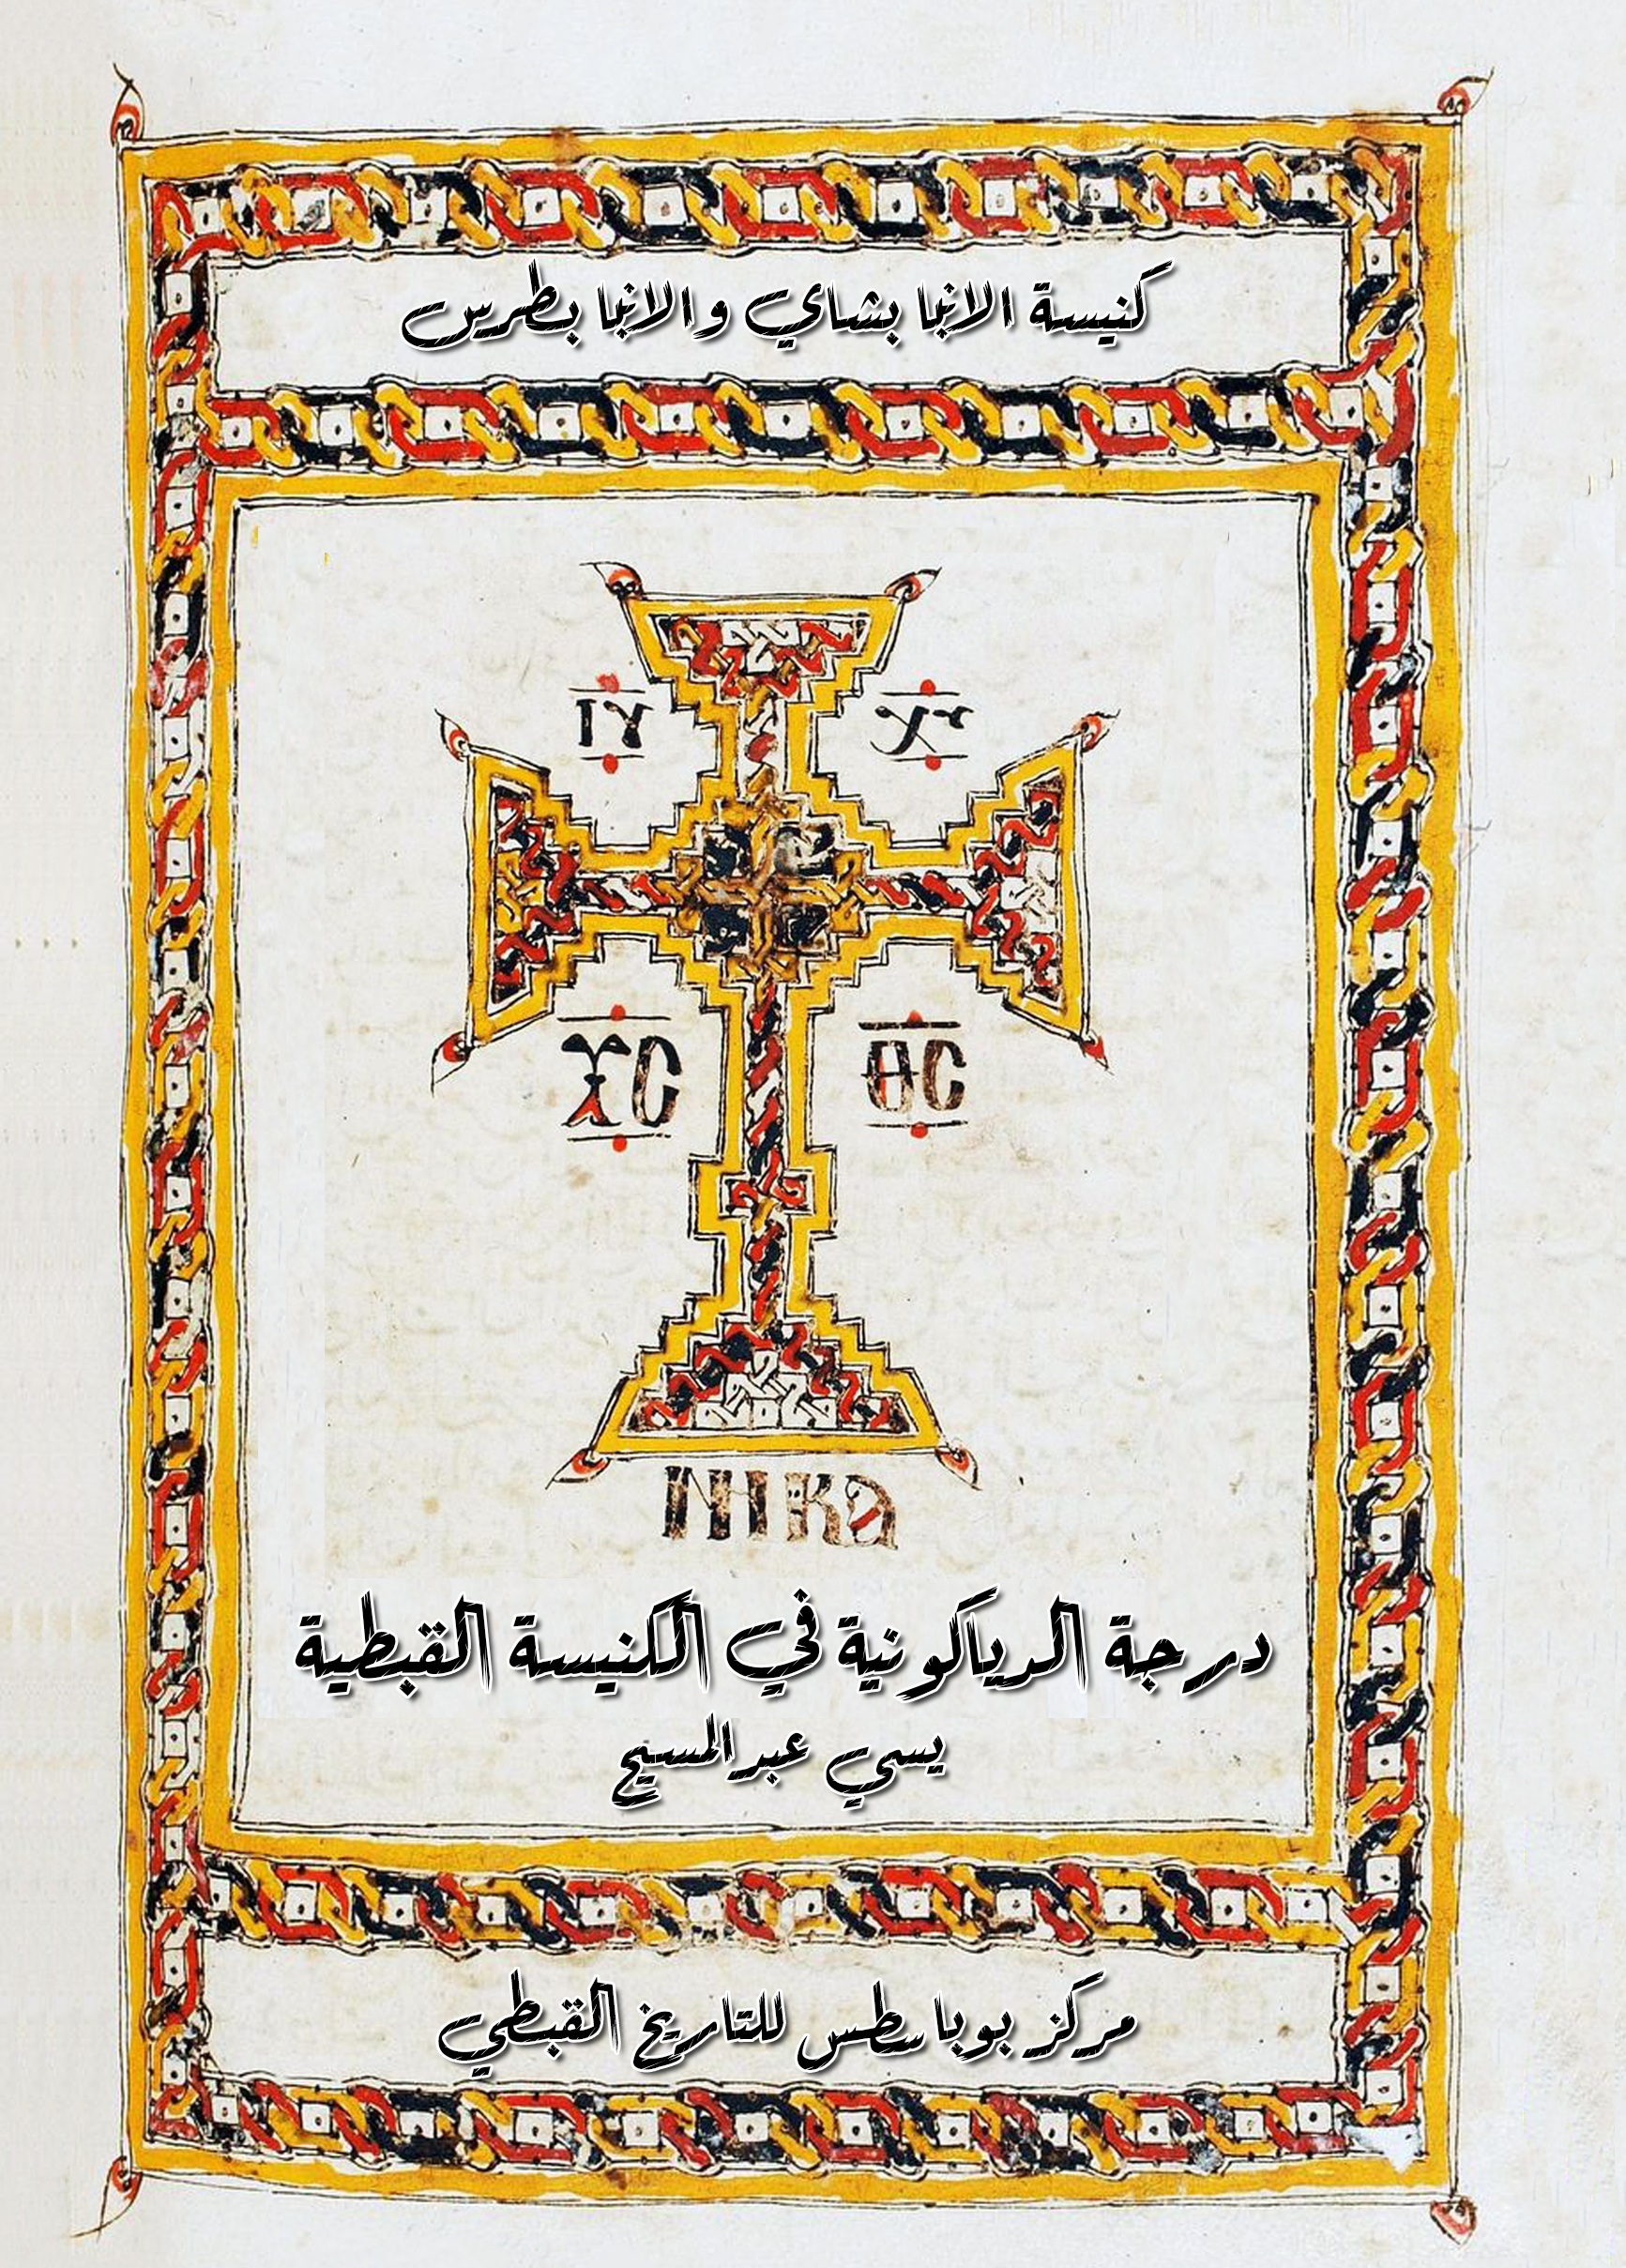 كنيسة الانبا بشاي والانبا بطرس
ⲓⲩ ⲭⲩ
ⲩⲥ ⲑⲥ
ⲛⲓⲕⲁ
درجة الدياكونية في الكنيسة القبطية
يسي عبدالمسيح
مركز بوباسطس للتاريخ القبطي